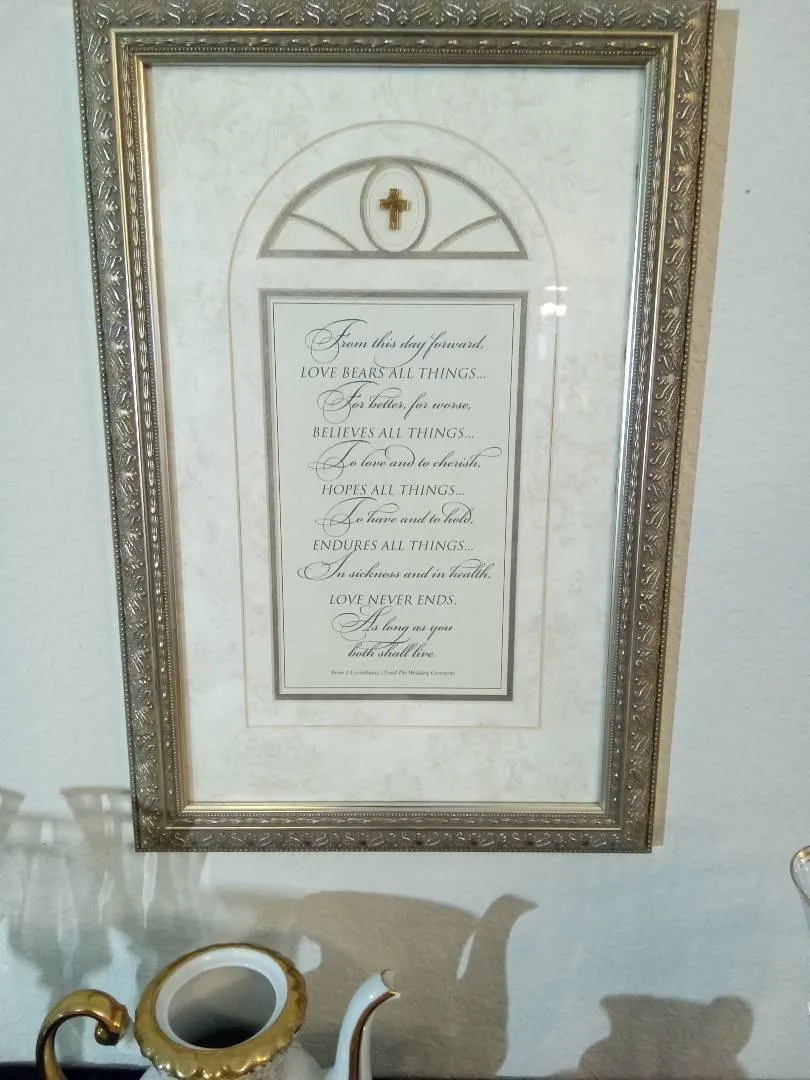 From this day forward,
LOVE BEARS ALL THINGS...
For better, for worse,
BELIEVES ALL THINGS...
To love and to cherish,
HOPES ALL THINGS...
To have and to hold,
ENDURES ALL THINGS...
In sickness and in health,
LOVE NEVER ENDS.
As long as you
both shall live.
From 1 Corinthians 13 and The Wedding Ceremony